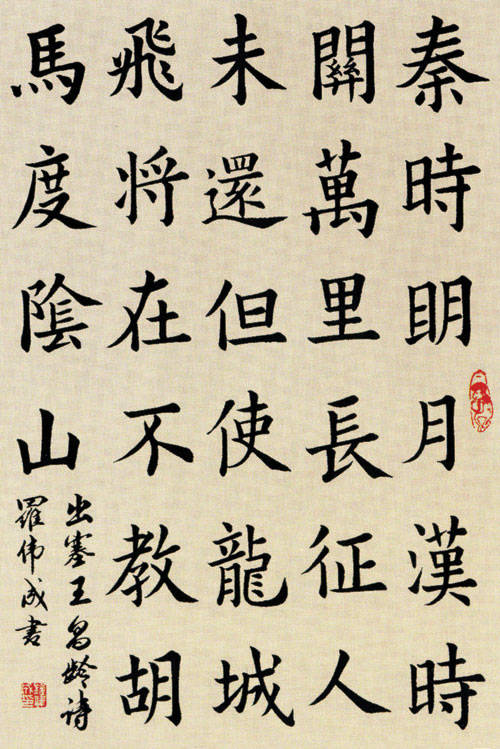 秦時明月漢時
關萬里長征人
未還但使龍城
飛将在不教胡
馬度陰山
出塞王昌齡诗
羅伟成書